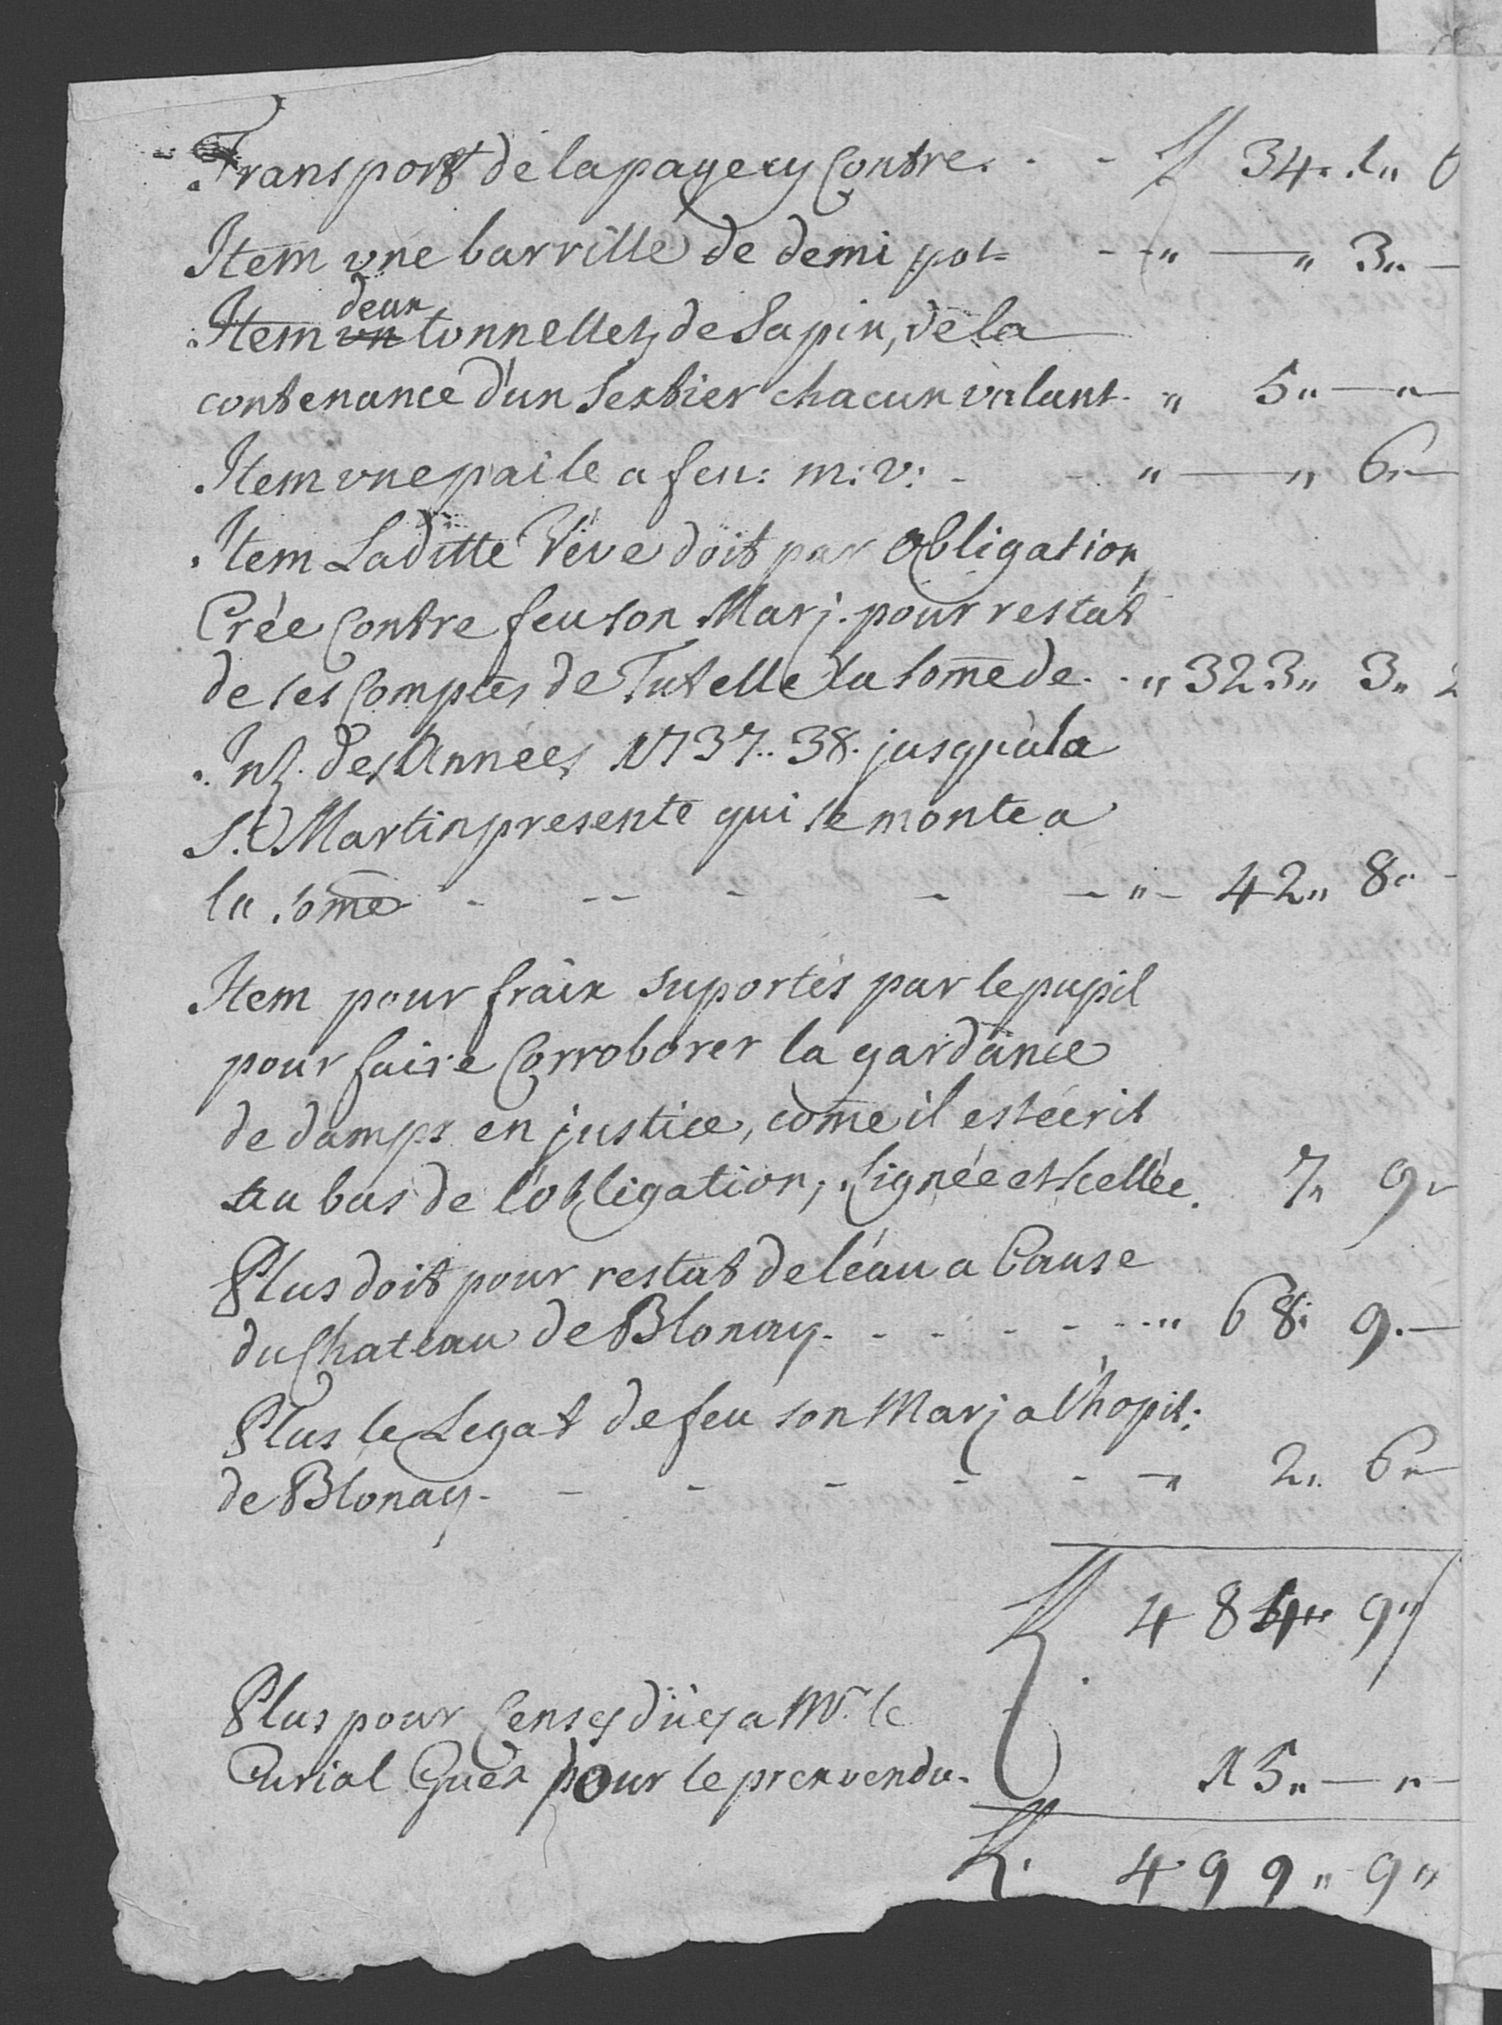 Transport de la page cy Contre. - - ff 34.. 1.. 6
Item une barrille de demi pot - - " — " 3.. —
deux
Item un tonnellets de Sapin, de la
contenance d'un Sextier chacun valant. " 5.. — " —
Item une paile a feu: m: v: - - " — " 6.. —
Item Laditte Véve doit par Obligation
Crée Contre feu son Marj. pour restat
de ses Comptes de Tutelle la some de. - " 323.. 3..
Int. des Années 1737.. 38. jusqu'a la
St. Martin presente qui se monte a
la some - - - - - - " - 42.. 8.. -
Item pour fraix suportés par le pupil
pour faire Corroborer la gardance
de damps en justice, come il est écrit
au bas de l'obligation, Signée et Scellée. 7.. 9..
Plus doit pour restat de léau a Cause
du Chateau de Blonay. - - - - - " 68: 9. —
Plus le Legat de feu son Marj a l'hopit:
de Blonay. - - - - - - " 2.. 6.. —
ff 484.. 9..
Plus pour Censes düés a Mr. le
Curial Guex pour le prex vendu. 15.. — " —
ff. 499.. 9..